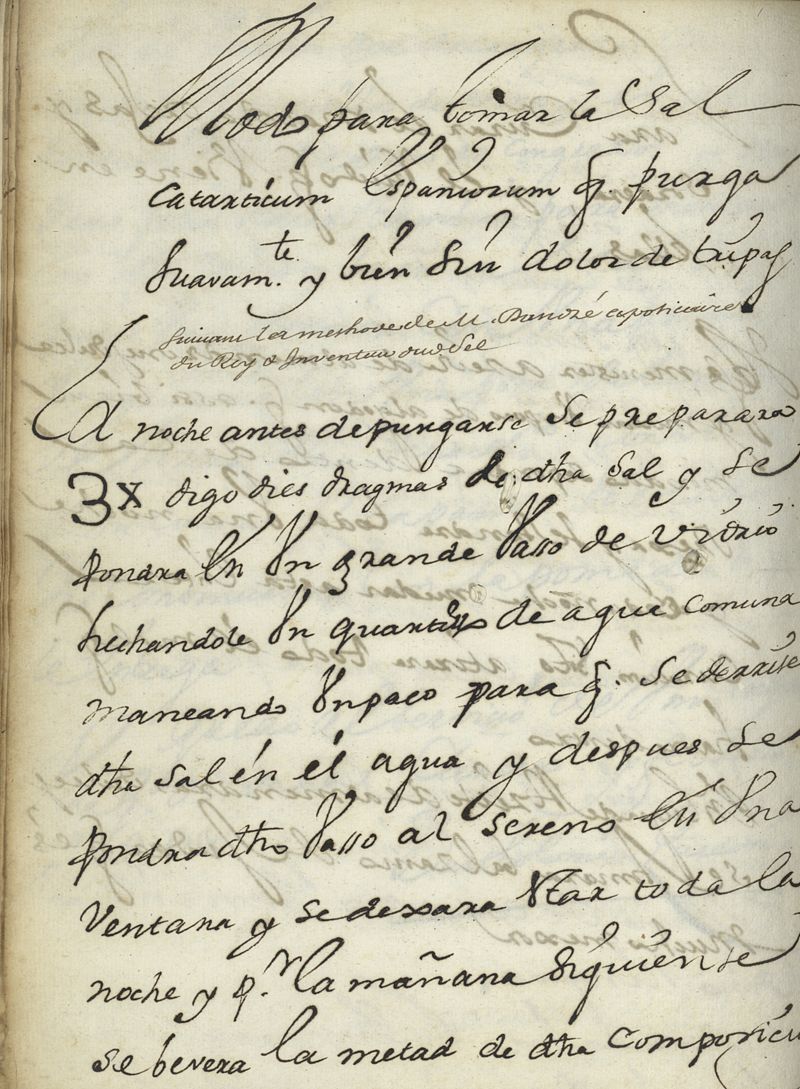 Modo para tomar la Sal
Catarticum Espaniorum q. purga
Suavam.te y bien Sin dolor de tripas
Suivant la methode de M. apoticaire
du Roy & Inventeur dud Sel
La noche antes de purgarse Se preparara
3x digo dies dragmas de dha Sal y Se
pondra En Un grande Vaso de Vidrio
hechandole Un quartillo de agua comuna
maneando Un poco para q. Se derrite
dha Sal én él agua y despues Se
pondra dho Vaso al Sereno En Una
Ventana y Se dexara Estar toda la
noche y p.r la mañana Siguiente
Se bevera la metad de dha Composicio